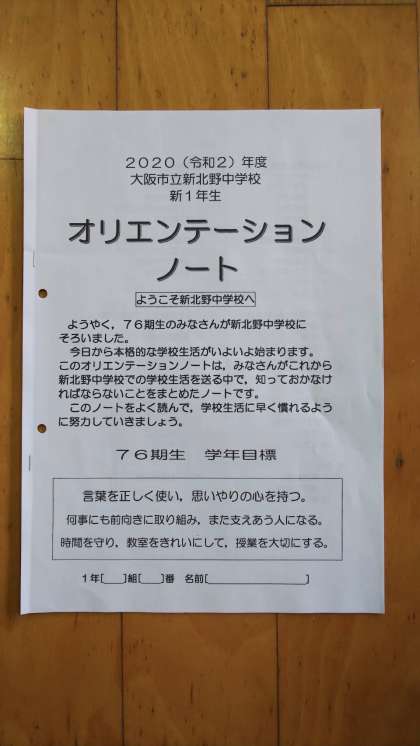 ２０２０（令和２）年度
大阪市立新北野中学校
新１年生
オリエンテーション
ノート
ようこそ新北野中学校へ
ようやく，７６期生のみなさんが新北野中学校に
そろいました。
今日から本格的な学校生活がいよいよ始まります。
このオリエンテーションノートは，みなさんがこれから
新北野中学校での学校生活を送る中で，知っておかなけ
ればならないことをまとめたノートです。
このノートをよく読んで，学校生活に早く慣れるよう
に努力していきましょう。
７６期生　学年目標
言葉を正しく使い，思いやりの心を持つ。
何事にも前向きに取り組み，また支えあう人になる。
時間を守り，教室をきれいにして，授業を大切にする。
１年[　　]組[　　]番　名前[　　　　　　　　　　]